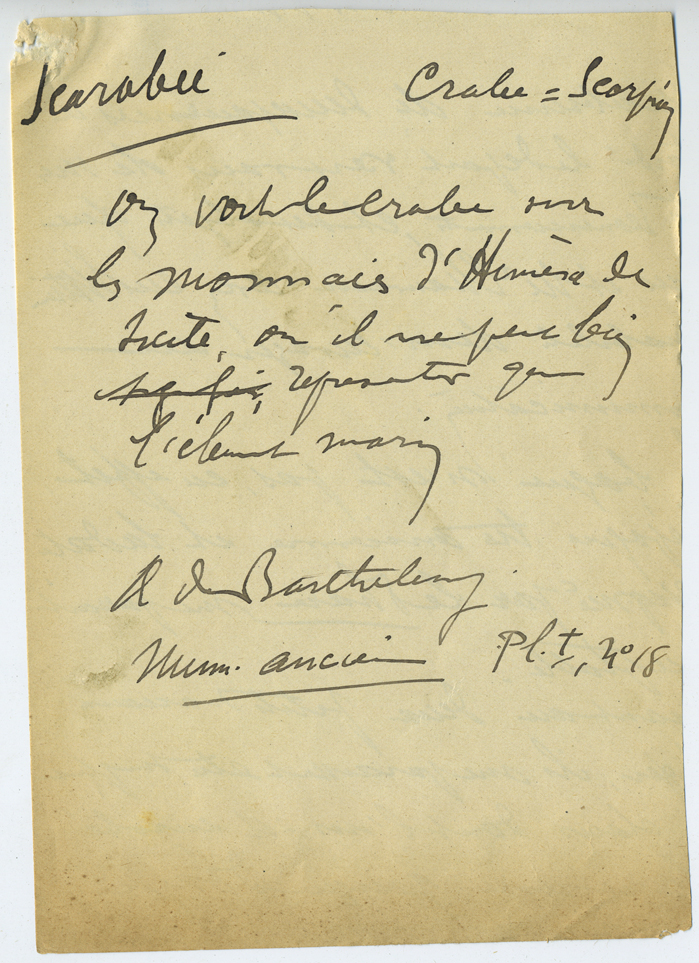 Scarabée Crabe = Scorpion
On voit le crabe sur
les monnaies d'Himèra de
Sicile, où il ne peut bien
signifier, representer que
l'élément marin
A de Barthelemy.
Numm. ancienne Pl. I, n° 18